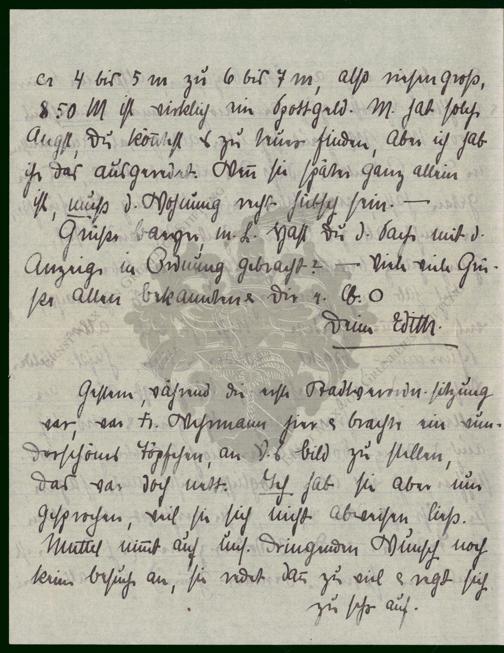 ca 4 bis 5 m zu 6 bis 7 m, also riesengroß,
850 M ist wirklich ein Spottgeld. M. hat solche
Angst, Du könntest es zu teuer finden, aber ich hab
ihr das ausgeredet. Wenn sie später ganz allein
ist, muß d. Wohnung recht hübsch sein. —
Grüße m. L. Hast Du d. Sache mit d.
Anzeige in Ordnung gebracht? — Viele viele Grü-
ße allen Bekannten & Dir
Deine Edith.
Gestern, während die erste Stadtverordn.sitzung
war, war Fr. Wehrmann hier & brachte ein wun-
derschönes Töpfchen an V.s Bild zu stellen,
das war doch nett. Ich hab sie aber nur
gesprochen, weil sie sich nicht abweisen ließ.
Mutti nimmt auf uns. dringenden Wunsch noch
keine Besuche an, sie redet dann zu viel & regt sich
zu sehr auf.